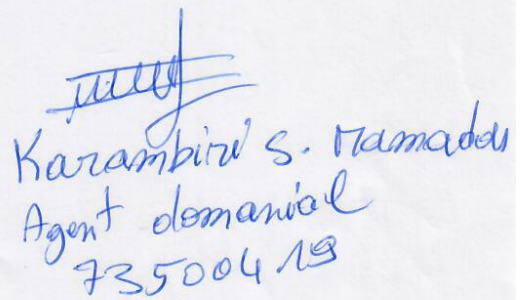 Karambiri S. Mamadou
Agent domanial
73500419